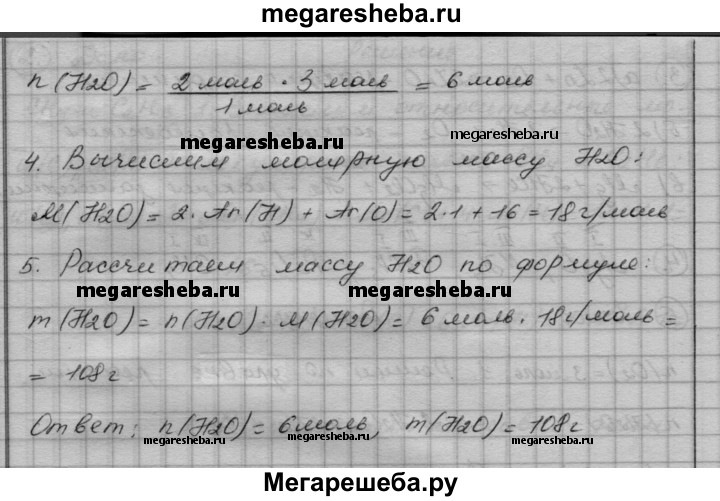 megaresheba.ru
n(H2O) = 2 моль · 3 моль / 1 моль = 6 моль
megaresheba.ru megaresheba.ru
4. Вычислим молярную массу H2O:
M(H2O) = 2·Ar(H) + Ar(O) = 2·1 + 16 = 18 г/моль
5. Рассчитаем массу H2O по формуле:
megaresheba.ru megaresheba.ru
m(H2O) = n(H2O) · M(H2O) = 6 моль · 18 г/моль =
= 108 г
Ответ: n(H2O) = 6 моль, m(H2O) = 108 г
megaresheba.ru megaresheba.ru
Мегарешеба.ру